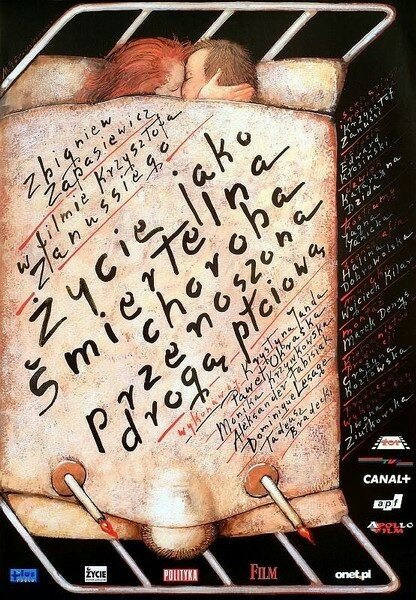 Zbigniew
Zapasiewicz
w filmie Krzysztofa
Zanussiego
Życie jako
śmiertelna
choroba
przenoszona
drogą płciową
wykonawcy Krystyna Janda
Paweł Okraska
Monika Krzywkowska
Aleksander Fabisiak
Dominique Lesage
Tadeusz
Bradecki
Krzysztof
Zanussi
Edward
Kłosiński
Jagna
Janicka
Halina
Dobrowolska
Wojciech Kilar
Marek Denys
Grażyna
Kozłowska
Iwona
Ziułkowska
tor
TV
CANAL+
apf
APOLLO
FILM
plus
ŻYCIE
POLITYKA
FILM
onet.pl